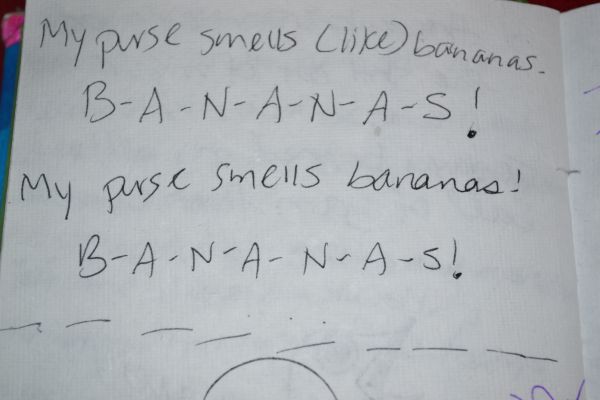 My purse smells (like) bananas.
B-A-N-A-N-A-S!
My purse smells bananas!
B-A-N-A-N-A-S!